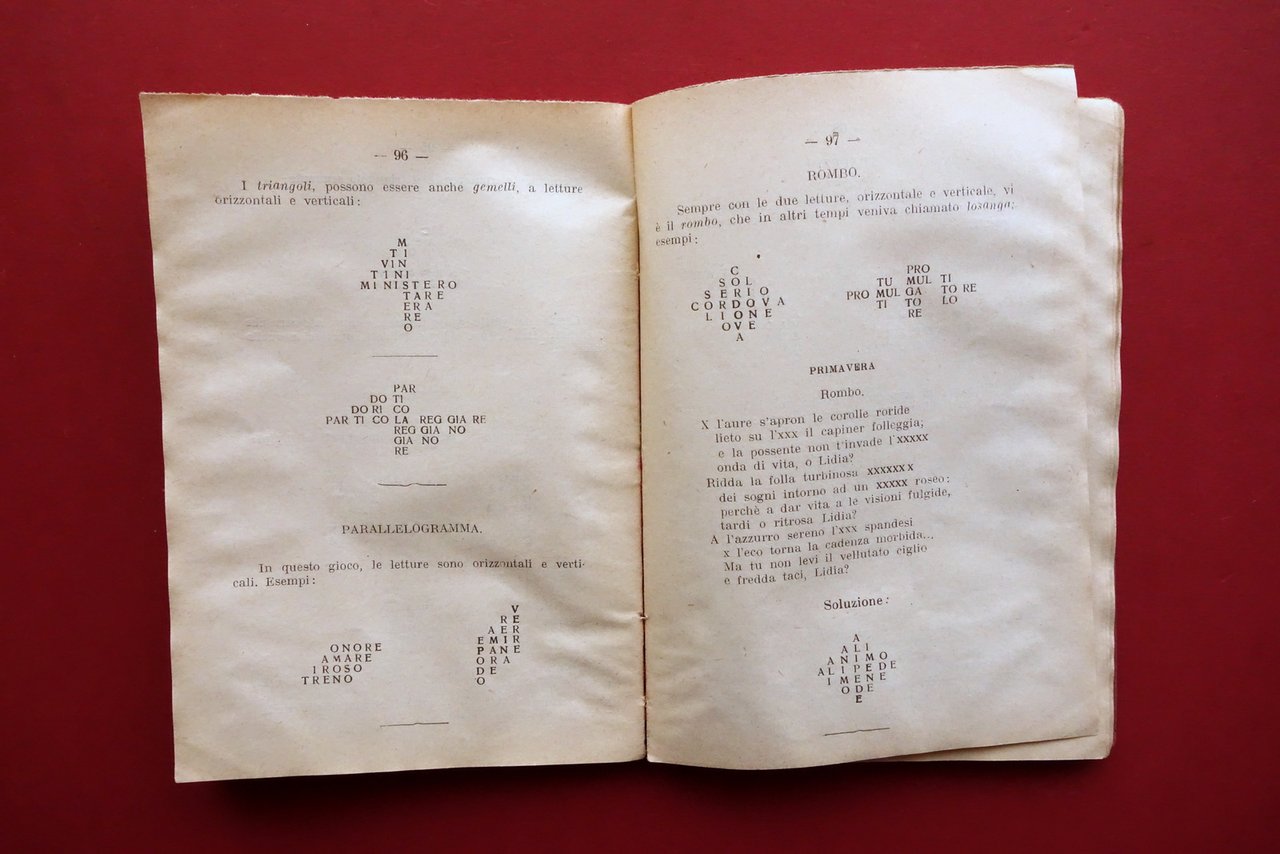 — 96 —
I triangoli, possono essere anche gemelli, a letture
orizzontali e verticali:
M
T I
V I N
T I N I
M I N I S T E R O
T A R E
E R A
R E
O
PAR
DO TI
DO RI CO
PAR TI CO LA REG GIA RE
REG GIA NO
GIA NO
RE
PARALLELOGRAMMA.
In questo gioco, le letture sono orizzontali e verti-
cali. Esempi:
O N O R E
A M A R E
I R O S O
T R E N O
V
R E
A E R
E M I R
P A N E
O R A
D E
O
— 97 —
ROMBO.
Sempre con le due letture, orizzontale e verticale, vi
è il rombo, che in altri tempi veniva chiamato losanga;
esempi:
C
S O L
S E R I O
C O R D O V A
L I O N E
O V E
A
PRO
TU MUL TI
PRO MUL GA TO RE
TI TO LO
RE
PRIMAVERA
Rombo.
X l'aure s'apron le corolle roride
lieto su l'xxx il capiner folleggia;
e la possente non t'invade l'xxxxx
onda di vita, o Lidia?
Ridda la folla turbinosa xxxxxxx
dei sogni intorno ad un xxxxx roseo:
perchè a dar vita a le visioni fulgide,
tardi o ritrosa Lidia?
A l'azzurro sereno l'xxx spandesi
x l'eco torna la cadenza morbida...
Ma tu non levi il vellutato ciglio
e fredda taci, Lidia?
Soluzione:
A
A L I
A N I M O
A L I P E D E
I M E N E
O D E
E